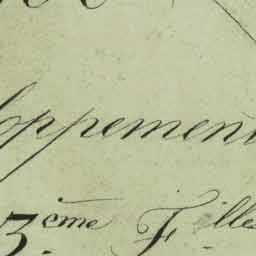 loppement
3.ème Fille